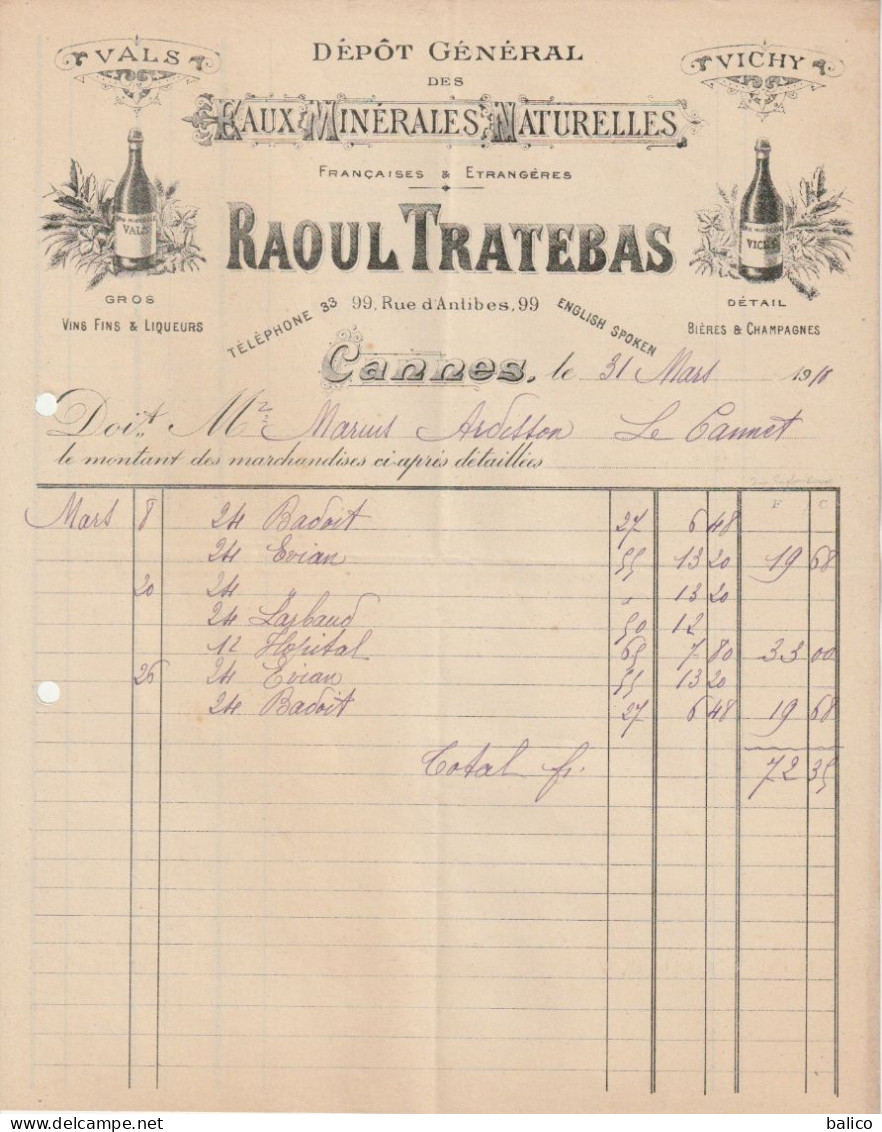 VALS
DÉPÔT GÉNÉRAL
VICHY
DES
EAUX MINÉRALES NATURELLES
FRANÇAISES & ETRANGÉRES
VALS
VICHY
RAOUL TRATEBAS
GROS
VINS FINS & LIQUEURS
TÉLÉPHONE 33
99, Rue d'Antibes, 99
ENGLISH SPOKEN
DÉTAIL
BIÈRES & CHAMPAGNES
Cannes, le 31 Mars 1910
Doit Mr Marius Ardisson Le Cannet
le montant des marchandises ci-après détaillées
F C
Mars 8 24 Badoit 27 6 48
24 Evian 55 13 20 19 68
20 24 " " 13 20
24 Larbaud 50 12
12 Hôpital 65 7 80 33 00
26 24 Evian 55 13 20
24 Badoit 27 6 48 19 68
Total fr. 72 35
balico